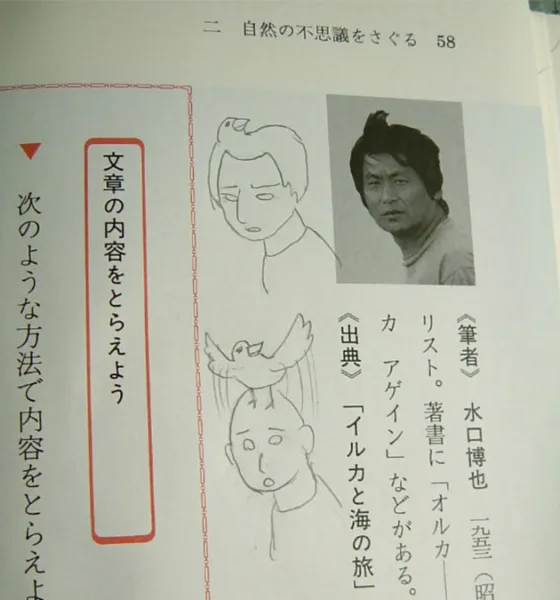 二 自然の不思議をさぐる 58
《筆者》 水口博也 一九五三(昭
リスト。著書に「オルカ―
カ アゲイン」などがある。
《出典》「イルカと海の旅」
文章の内容をとらえよう
▼ 次のような方法で内容をとらえよ